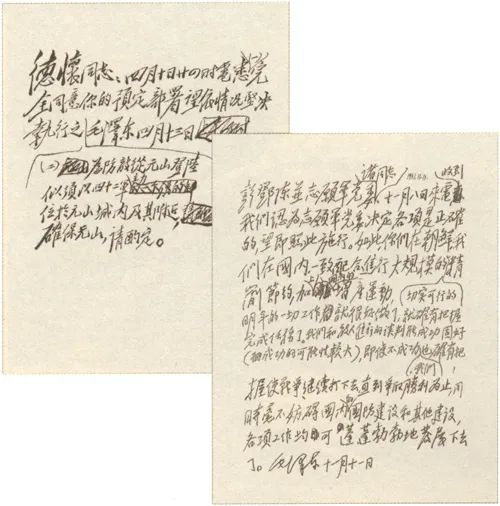 德懷同志:四月十日廿四时電悉完
全同意你的預定部署望依情况坚决
執行之 毛澤东 四月十二日
(二)為防敵從元山登陸
似須以四十二軍
位於元山城内及其附近,
確保元山,請酌定。
彭鄧陈並志願軍党委諸同志
十一月八日来電收到
我們認為志願軍党委決定各項是正確
的望即照此施行。如此你們在朝鮮我
們在國内一致配合進行大規模的精
簡節约和增產運動,
切实可行的
明年的一切工作就很好做了,就確有把握
完成任務了。我們和敵人進行的談判能成功固好
(細成功的可能性較大),即使不成功也確有把
我們
握使戰爭继续打下去直到爭取勝利為止,同
時毫不妨碍國内國防建設和其他建設,
各項工作均可蓬蓬勃勃地發展下去
了。毛澤东 十一月十一日